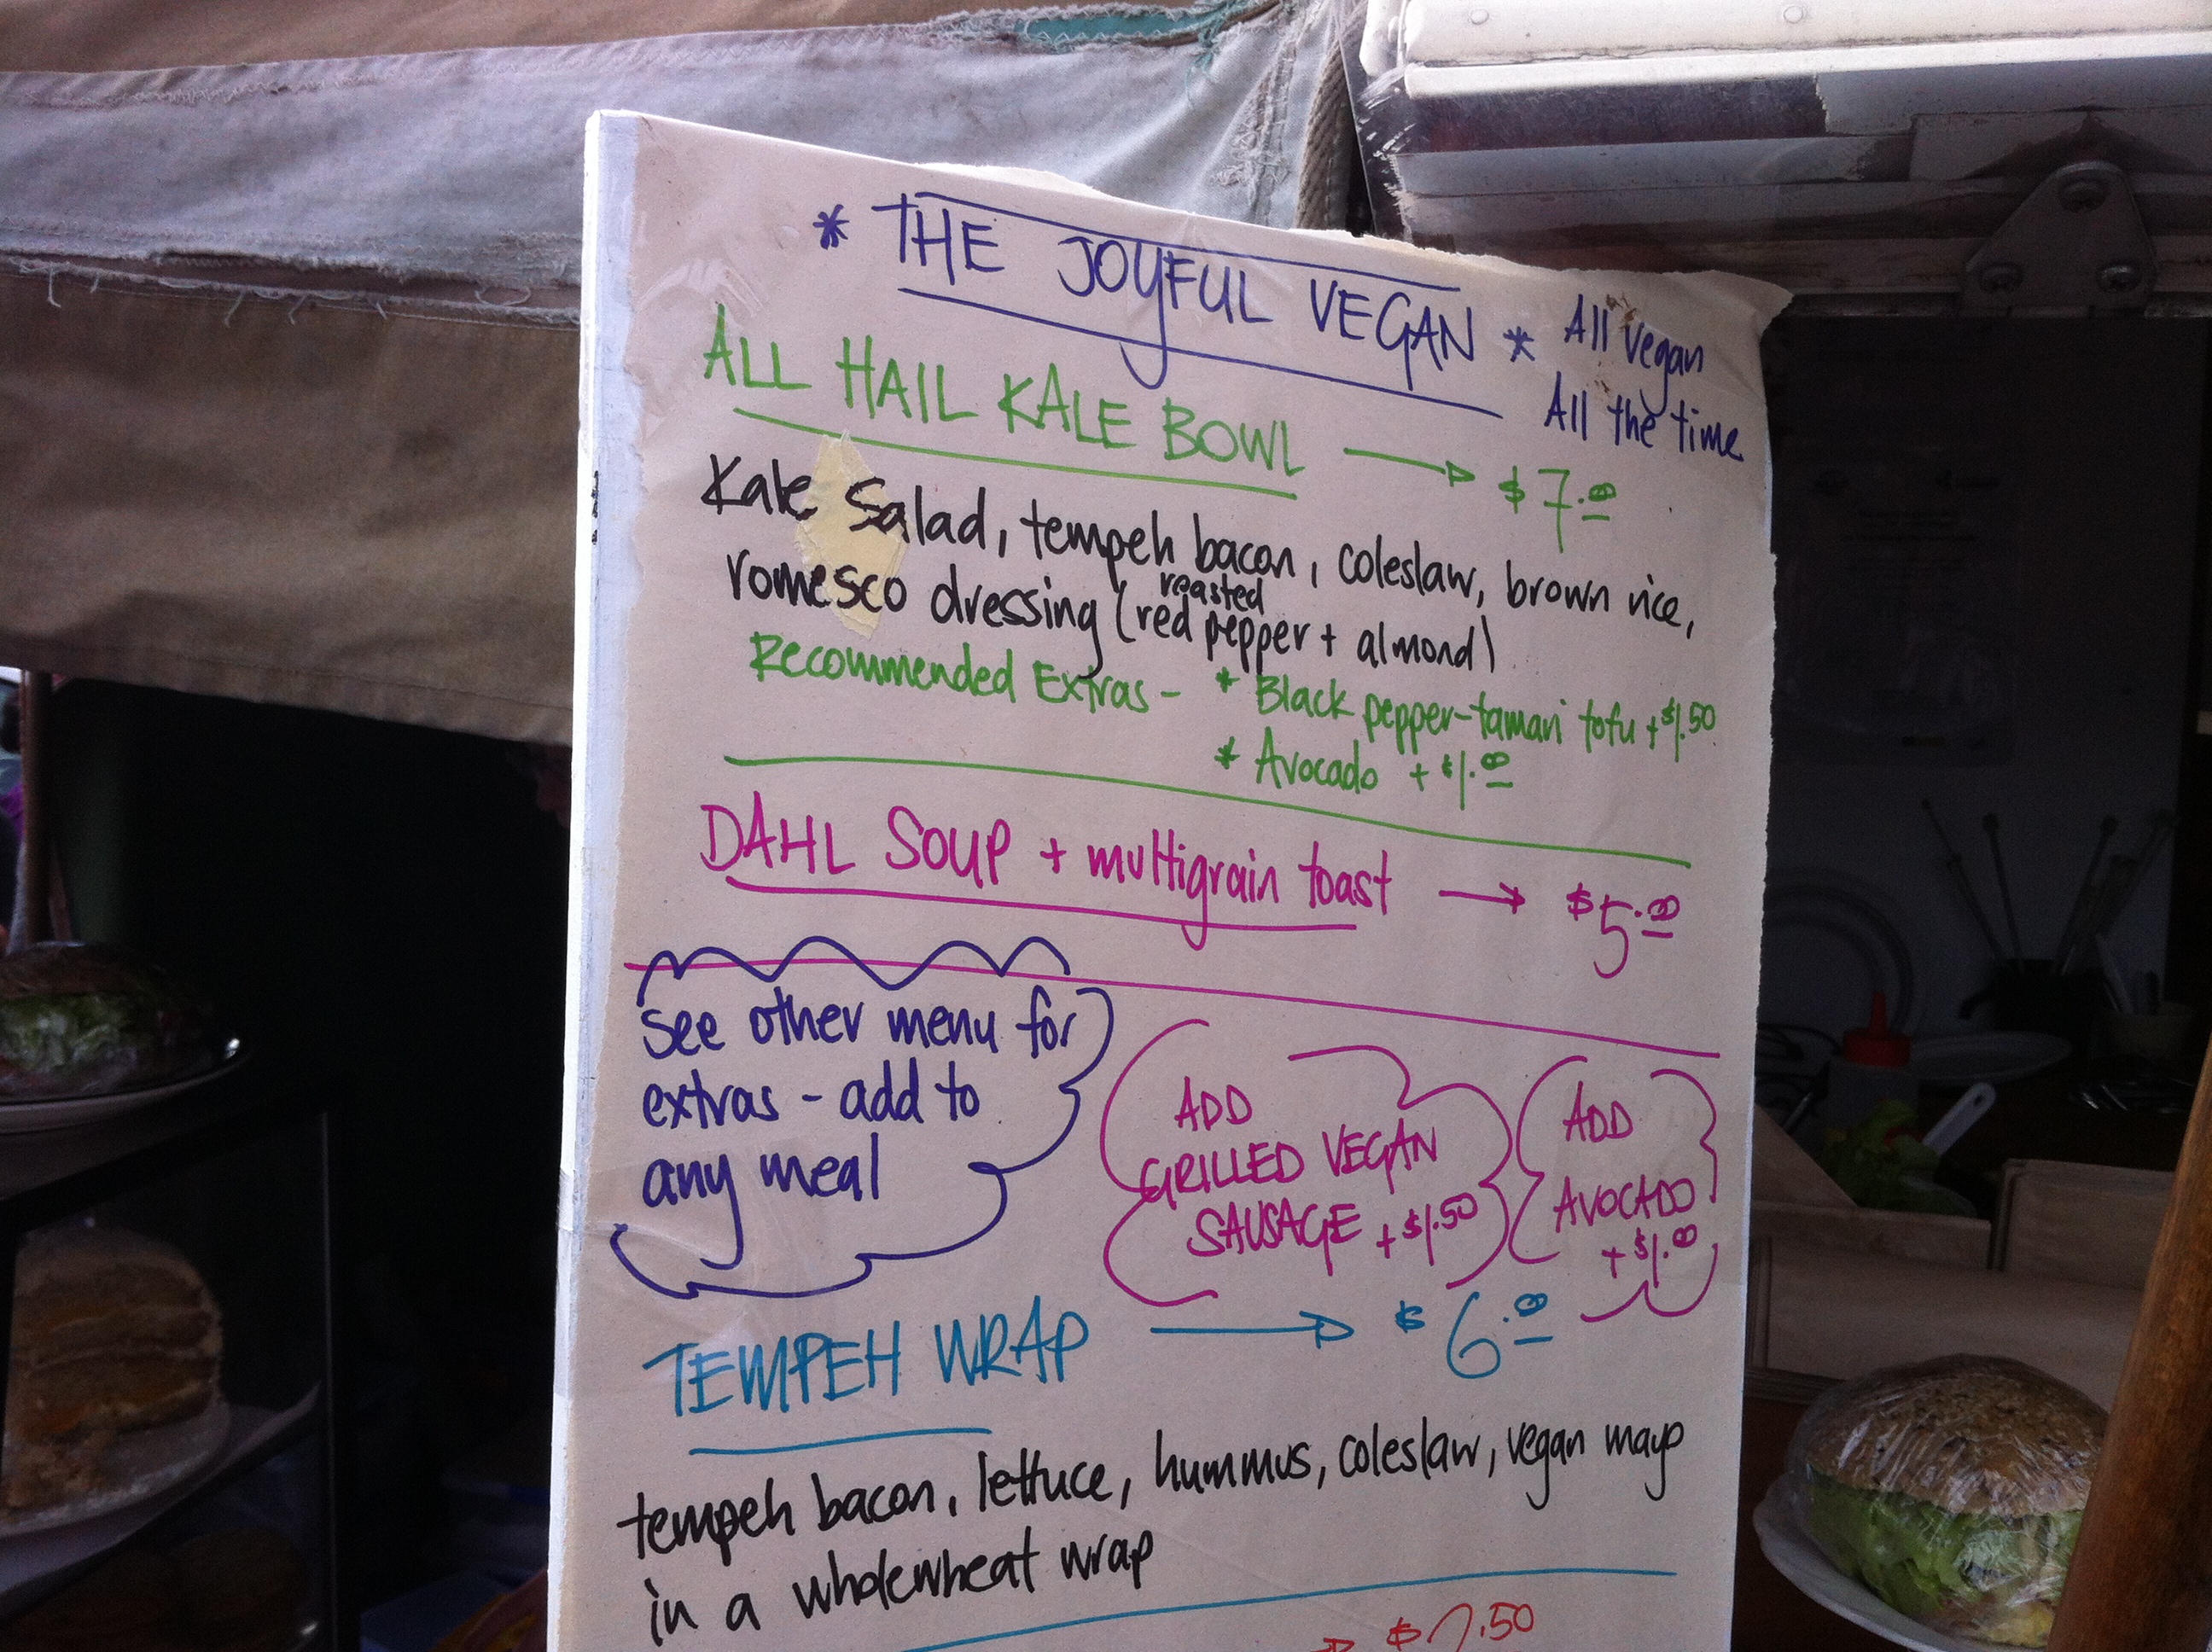 * THE JOYFUL VEGAN *
All vegan
All the time
ALL HAIL KALE BOWL → $7.00
Kale Salad, tempeh bacon, coleslaw, brown rice,
romesco dressing (red roasted pepper + almond)
Recommended Extras - * Black pepper-tamari tofu +$1.50
* Avocado +$1.00
DAHL SOUP + multigrain toast → $5.00
see other menu for
extras - add to
any meal
ADD
GRILLED VEGAN
SAUSAGE +$1.50
ADD
AVOCADO
+$1.00
TEMPEH WRAP → $6.00
tempeh bacon, lettuce, hummus, coleslaw, vegan mayo
in a wholewheat wrap
→ $7.50